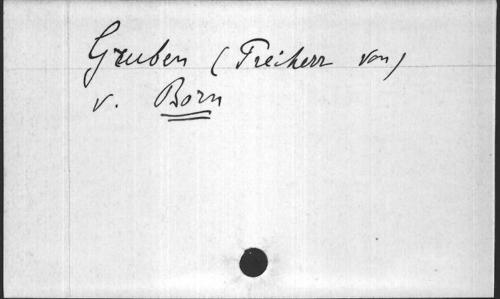 Gruben (Freiherr von)
v. Born